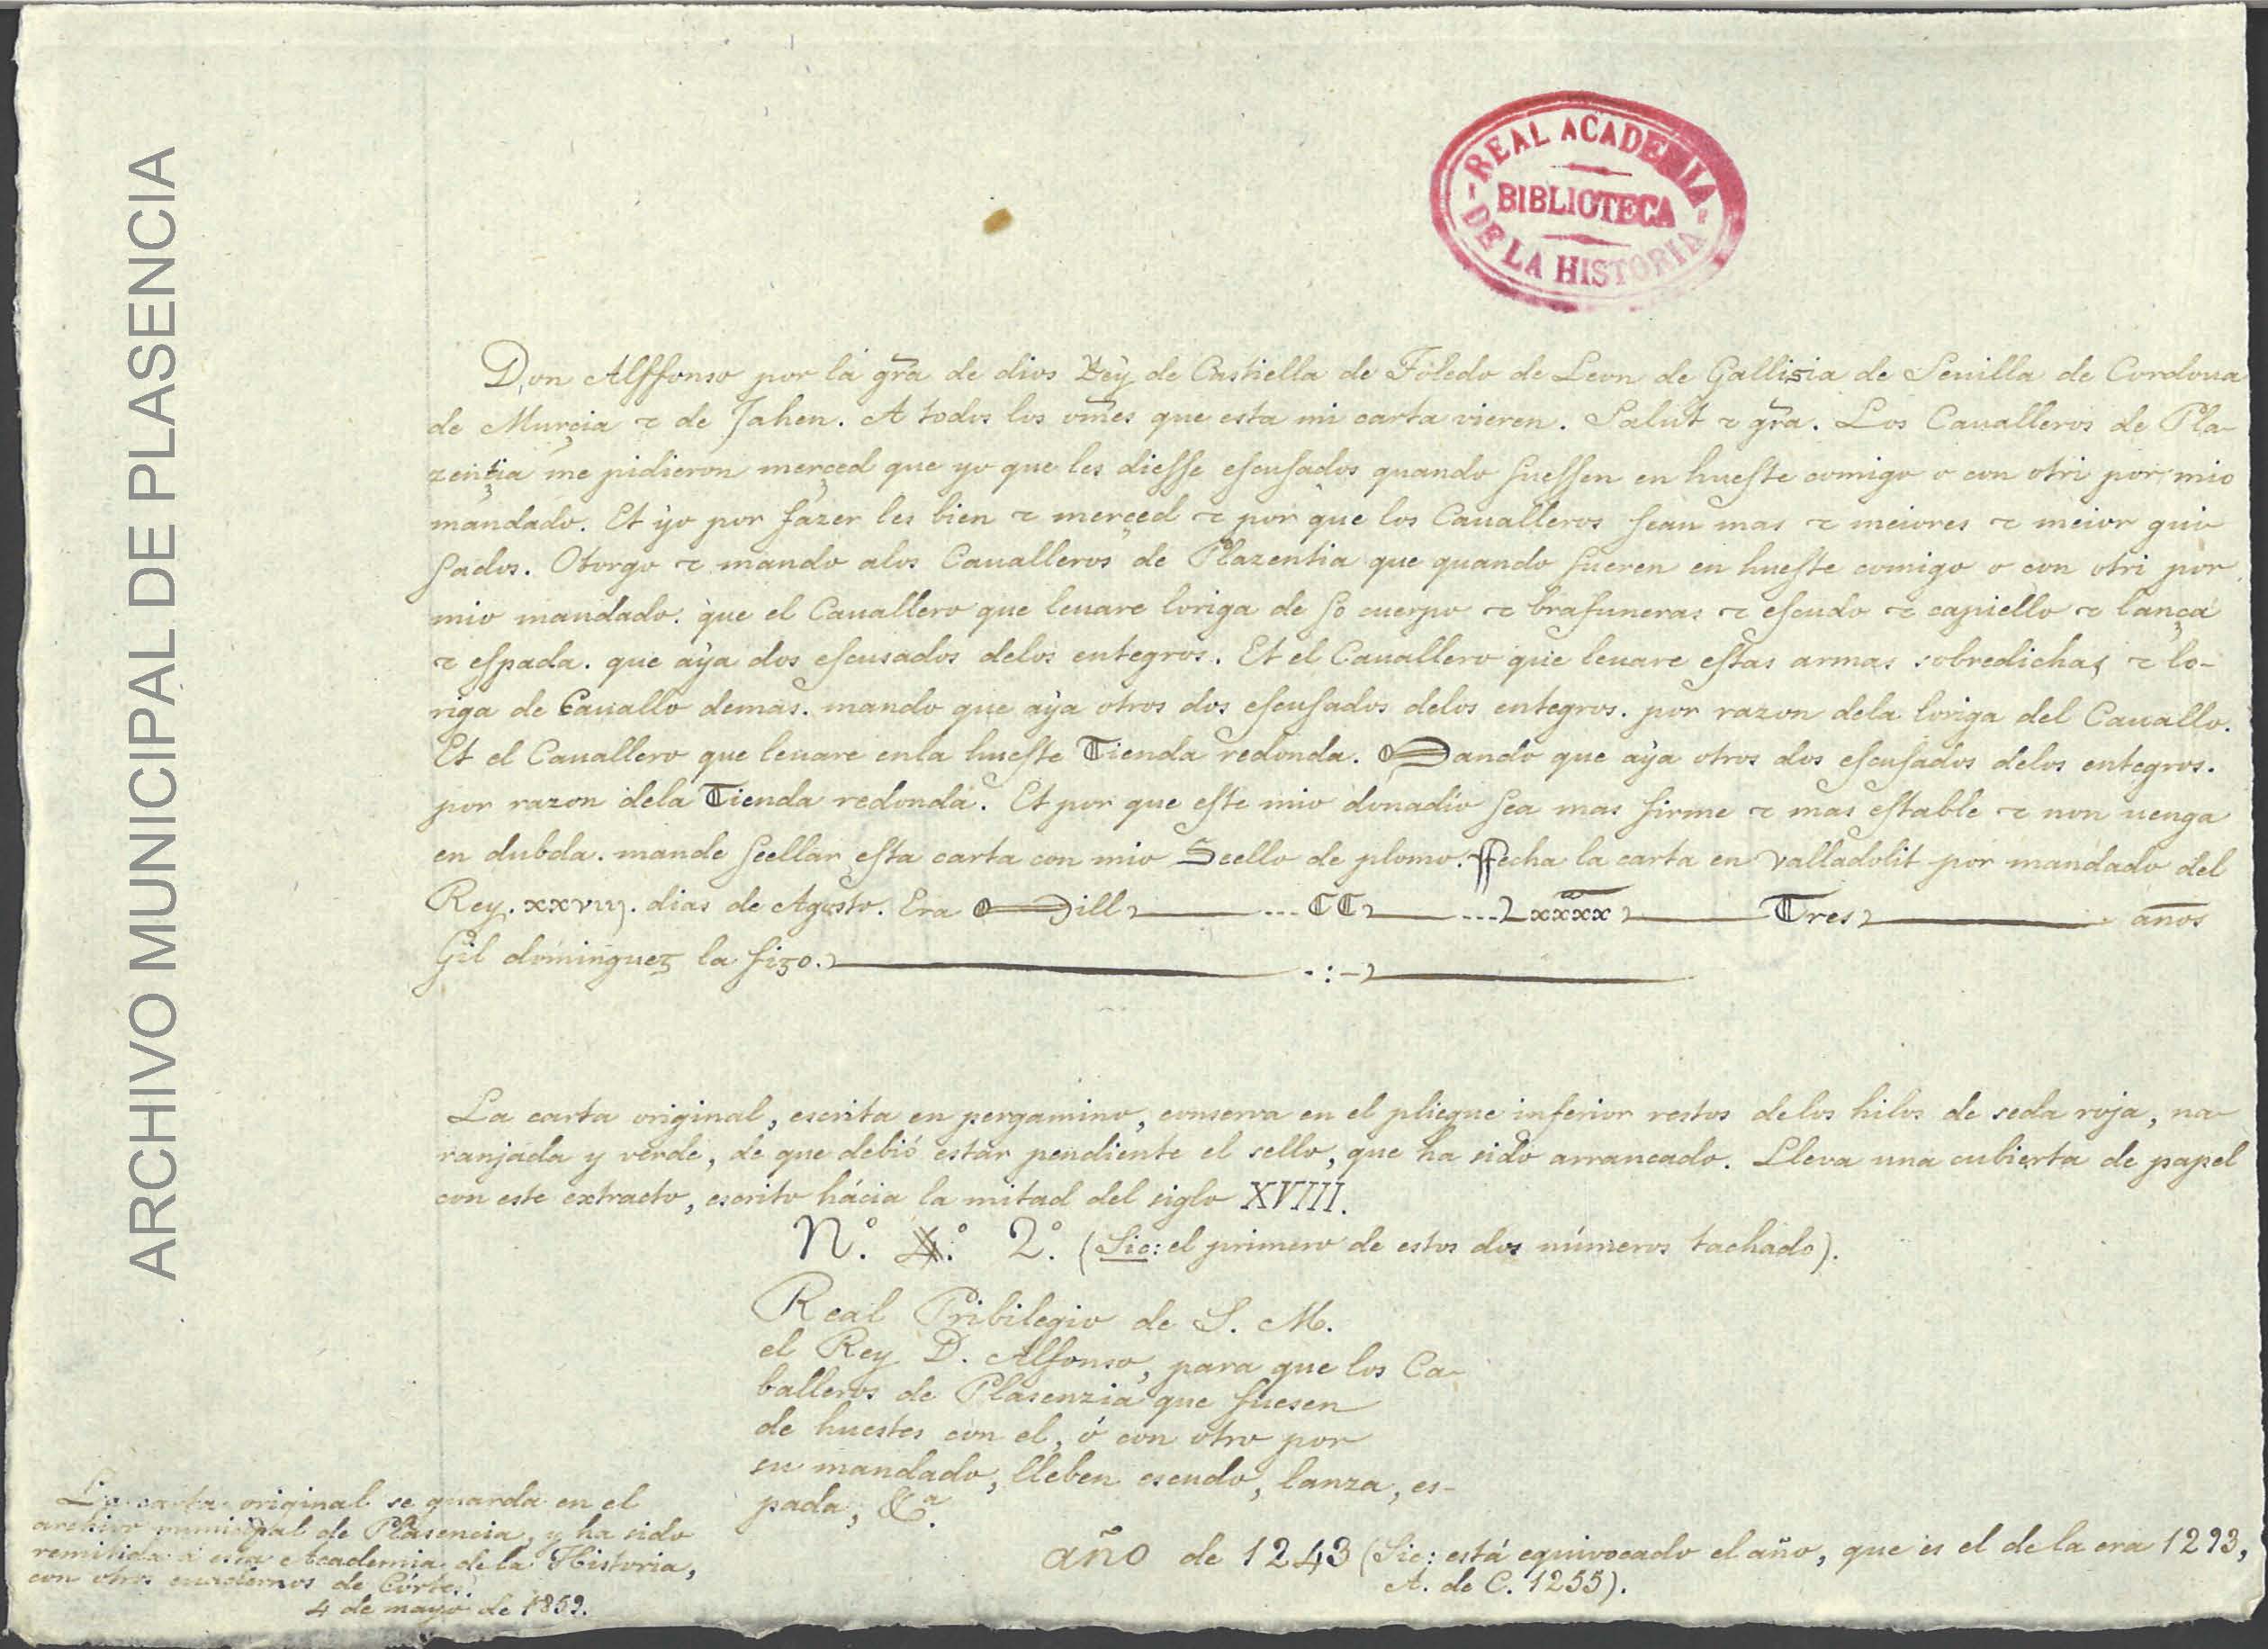 ARCHIVO MUNICIPAL DE PLASENCIA
REAL ACADEMIA
BIBLIOTECA
DE LA HISTORIA
Don Alffonso por la gr̃a de dios Rey de Castiella de Toledo de Leon de Gallisia de Seuilla de Cordoua
de Murçia τ de Jahen. A todos los om̃es que esta mi carta vieren. Salut τ gr̃a. Los Caualleros de Pla-
zençia me pidieron merçed que yo que les dieſſe eſcuſados quando fueſſen en hueſte comigo o con otri por mio
mandado. Et yo por fazer les bien τ merçed τ por que los Caualleros ſean mas τ meiores τ meior gui-
ſados. Otorgo τ mando alos Caualleros de Plazentia que quando fueren en hueſte comigo o con otri por
mio mandado. que el Cauallero que leuare loriga de ſo cuerpo τ braſuneras τ eſcudo τ capiello τ lança
τ eſpada. que aya dos eſcusados delos entegros. Et el Cauallero que leuare eſtas armas sobredichas τ lo-
riga de Cauallo demas. mando que aya otros dos eſcuſados delos entegros. por razon dela loriga del Cauallo.
Et el Cauallero que leuare enla hueſte Tienda redonda. Mando que aya otros dos eſcuſados delos entegros.
por razon dela Tienda redonda. Et por que eſte mio donadio ſea mas firme τ mas eſtable τ non uenga
en dubda. mande ſeellar eſta carta con mio Seello de plomo. ffecha la carta en Valladolit por mandado del
Rey. xxviij. dias de Agosto. Era Mill ... CC ... Lxxxx Tres años
Gil dominguez la fizo.
La carta original, escrita en pergamino, conserva en el pliegue inferior restos delos hilos de seda roja, na-
ranjada y verde, de que debió estar pendiente el sello, que ha sido arrancado. Lleva una cubierta de papel
con este extracto, escrito hácia la mitad del siglo XVIII.
N.º 4.º 2.º (Sic: el primero de estos dos números tachado).
Real Pribilegio de S. M.
el Rey D. Alfonso, para que los Ca-
balleros de Plasenzia que fuesen
de huestes con el, ó con otro por
su mandado, lleben escudo, lanza, es-
pada, &.ª
año de 1243 (Sic: está equivocado el año, que es el de la era 1293,
A. de C. 1255).
La carta original se guarda en el
archivo municipal de Plasencia, y ha sido
remitida á esta Academia de la Historia,
con otros cuadernos de Córtes.
4 de mayo de 1859.